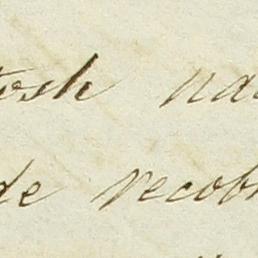 tosh na
de recob